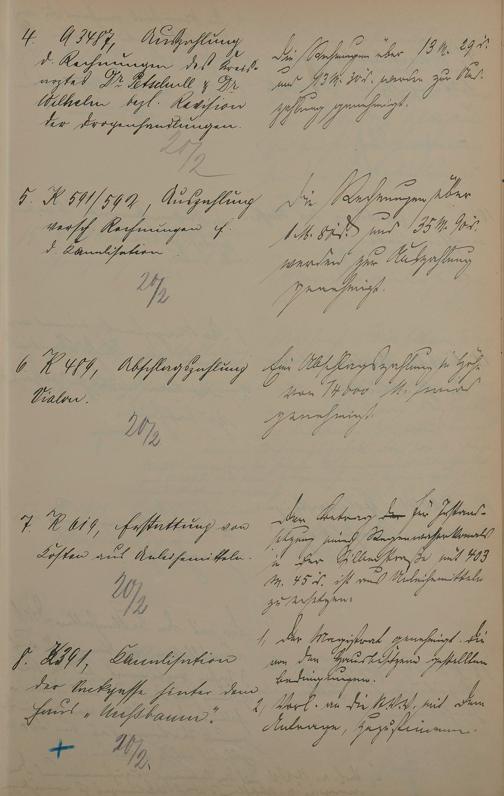 4. A 3487, Auszahlung
d. Rechnungen des Kreis-
arztes Dr. Petschull & Dr.
Wilhelm bezl. Revision
der Drogenhandlungen.
20/2
Die Rechnungen über 13 M. 29 d.
und 93 M. werden zur Aus-
zahlung genehmigt.
5. K 591/592, Auszahlung
versch Rechnungen f.
d. Canalisation
20/2
Die Rechnungen über
und 135 M. 90 d.
werden zur Auszahlung
genehmigt.
6 K 489, Abschlagszahlung
Vialon.
20/2
Eine Abschlagszahlung in Höhe
von 14000 M. wird
genehmigt.
7 K 619, Erstattung von
Kosten aus Anleihemitteln.
20/2
Der Betrag der für Instand-
setzung eines Regenwasserkanals
in der mit 403
M. 45 d. ist aus Anleihemitteln
zu ersetzen.
8. 2391, Canalisation
der Sackgasse hinter dem
Haus „Nussbaum".
20/2.
1, Der Magistrat genehmigt die
von den Hausbesitzern gestellten
Bedingungen.
2, Vorl. an die mit dem
Antrage, zuzustimmen.